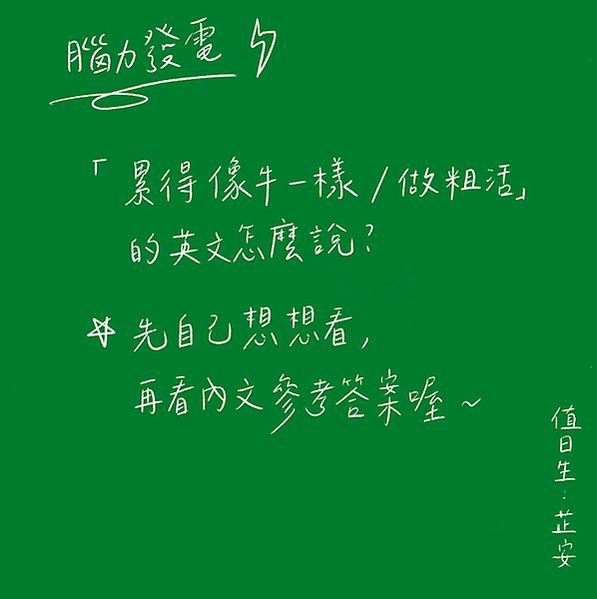 腦力發電
「累得像牛一樣/做粗活」
的英文怎麼說?
☆先自己想想看,
再看內文參考答案喔~
值日生:芷安